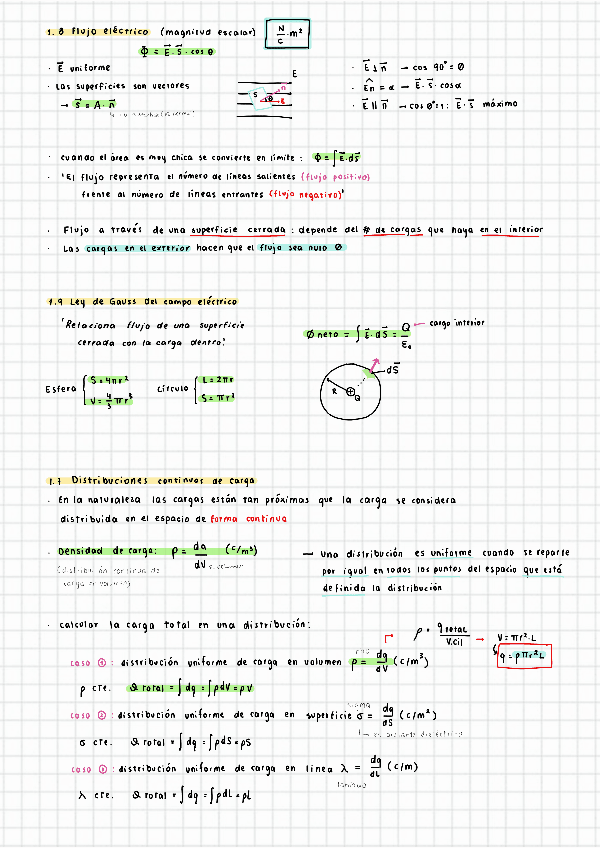 1.8 Flujo eléctrico (magnitud escalar) N/C · m²
Φ = E⃗ · S⃗ · cos θ
· E⃗ uniforme
· Las superficies son vectores
→ S⃗ = A · n⃗
E
S
n
θ
E
· E⃗ ⊥ n⃗ → cos 90° = 0
· En = α → E⃗ · S⃗ · cosα
· E⃗ || n⃗ → cos 0° = 1 : E⃗ · S⃗ máximo
· cuando el área es muy chica se convierte en límite : Φ = ∫ E⃗ · dS⃗
· "El flujo representa el número de líneas salientes (flujo positivo)
frente al número de líneas entrantes (flujo negativo)"
· Flujo a través de una superficie cerrada : depende del # de cargas que haya en el interior
· Las cargas en el exterior hacen que el flujo sea nulo 0
1.9 Ley de Gauss del campo eléctrico
"Relaciona flujo de una superficie
cerrada con la carga dentro"
Φ neto = ∫ E⃗ · dS⃗ = Q/ε₀ ← carga interior
Esfera { S = 4πr²
V = 4/3 πr³
Círculo { L = 2πr
S = πr²
dS⃗
R
Q
1.7 Distribuciones continuas de carga
· En la naturaleza las cargas están tan próximas que la carga se considera
distribuida en el espacio de forma continua
· Densidad de carga: ρ = dq/dV (c/m³)
(distribución continua de
carga en volumen)
→ Una distribución es uniforme cuando se reparte
por igual en todos los puntos del espacio que está
definida la distribución
· calcular la carga total en una distribución:
ρ = q total / V.cil → V = πr² · L
q = ρπr²L
caso 1 : distribución uniforme de carga en volumen ρ = dq/dV (c/m³)
ρ cte. Q total = ∫ dq = ∫ρdV = ρV
caso 2 : distribución uniforme de carga en superficie σ = dq/dS (c/m²)
σ cte. Q total = ∫ dq = ∫ρdS = ρS
caso 3 : distribución uniforme de carga en línea λ = dq/dL (c/m)
λ cte. Q total = ∫ dq = ∫ρdL = ρL